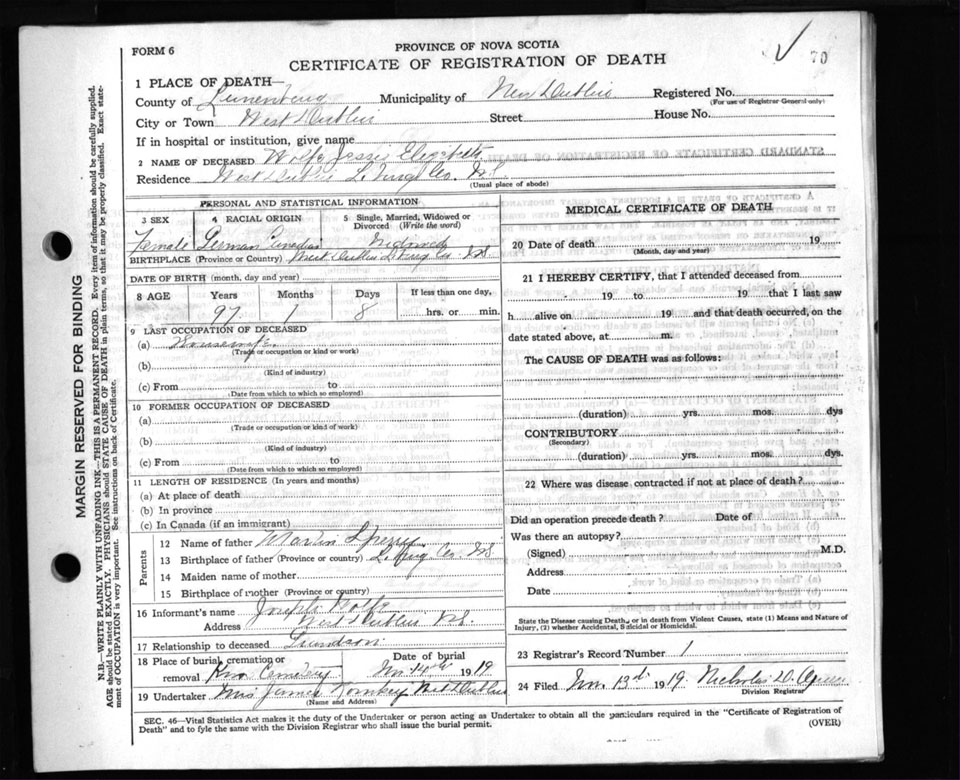 FORM 6
PROVINCE OF NOVA SCOTIA
CERTIFICATE OF REGISTRATION OF DEATH
70
1 PLACE OF DEATH—
County of Lunenburg Municipality of New Dublin Registered No.
(For use of Registrar General only)
City or Town West Dublin Street House No.
If in hospital or institution, give name
2 NAME OF DECEASED Wolfe Jessie Elizabeth
Residence West Dublin L'burg Co. N.S.
(Usual place of abode)
PERSONAL AND STATISTICAL INFORMATION
3 SEX 4 RACIAL ORIGIN 5 Single, Married, Widowed or Divorced (Write the word)
Female German Canadian Widowed
BIRTHPLACE (Province or Country) West Dublin L'burg Co. N.S.
DATE OF BIRTH (month, day and year)
8 AGE Years Months Days If less than one day,
97 1 8 hrs. or min.
9 LAST OCCUPATION OF DECEASED
(a) Housewife
(Trade or occupation or kind or work)
(b)
(Kind of industry)
(c) From to
(Date from which to which so employed)
10 FORMER OCCUPATION OF DECEASED
(a)
(Trade or occupation or kind of work)
(b)
(Kind of industry)
(c) From to
(Date from which to which so employed)
11 LENGTH OF RESIDENCE (In years and months)
(a) At place of death
(b) In province
(c) In Canada (if an immigrant)
Parents
12 Name of father Martin
13 Birthplace of father (Province or country) L'burg Co. N.S.
14 Maiden name of mother
15 Birthplace of mother (Province or country)
16 Informant's name Joseph Wolfe
Address West Dublin N.S.
17 Relationship to deceased Grandson
18 Place of burial, cremation or removal Cemetery Date of burial Nov 14th 1919
19 Undertaker Mrs James West Dublin
(Name and Address)
MEDICAL CERTIFICATE OF DEATH
20 Date of death 19
(Month, day and year)
21 I HEREBY CERTIFY, that I attended deceased from
19 to 19 that I last saw
h alive on 19 and that death occurred, on the
date stated above, at m.
The CAUSE OF DEATH was as follows:
(duration) yrs. mos. dys
CONTRIBUTORY
(Secondary)
(duration) yrs. mos. dys.
22 Where was disease contracted if not at place of death?
Did an operation precede death? Date of
Was there an autopsy?
(Signed) M.D.
Address
Date
State the Disease causing Death, or in death from Violent Causes, state (1) Means and Nature of
Injury, (2) whether Accidental, Suicidal or Homicidal.
23 Registrar's Record Number 1
24 Filed Nov 13th 1919. Nicholas D.
Division Registrar
SEC. 46—Vital Statistics Act makes it the duty of the Undertaker or person acting as Undertaker to obtain all the particulars required in the "Certificate of Registration of
Death" and to fyle the same with the Division Registrar who shall issue the burial permit. (OVER)
MARGIN RESERVED FOR BINDING
N.B.—WRITE PLAINLY WITH UNFADING INK—THIS IS A PERMANENT RECORD. Every item of information should be carefully supplied.
AGE should be stated EXACTLY. PHYSICIANS should STATE CAUSE OF DEATH in plain terms, so that it may be properly classified. Exact state-
ment of OCCUPATION is very important. See instructions on back of Certificate.